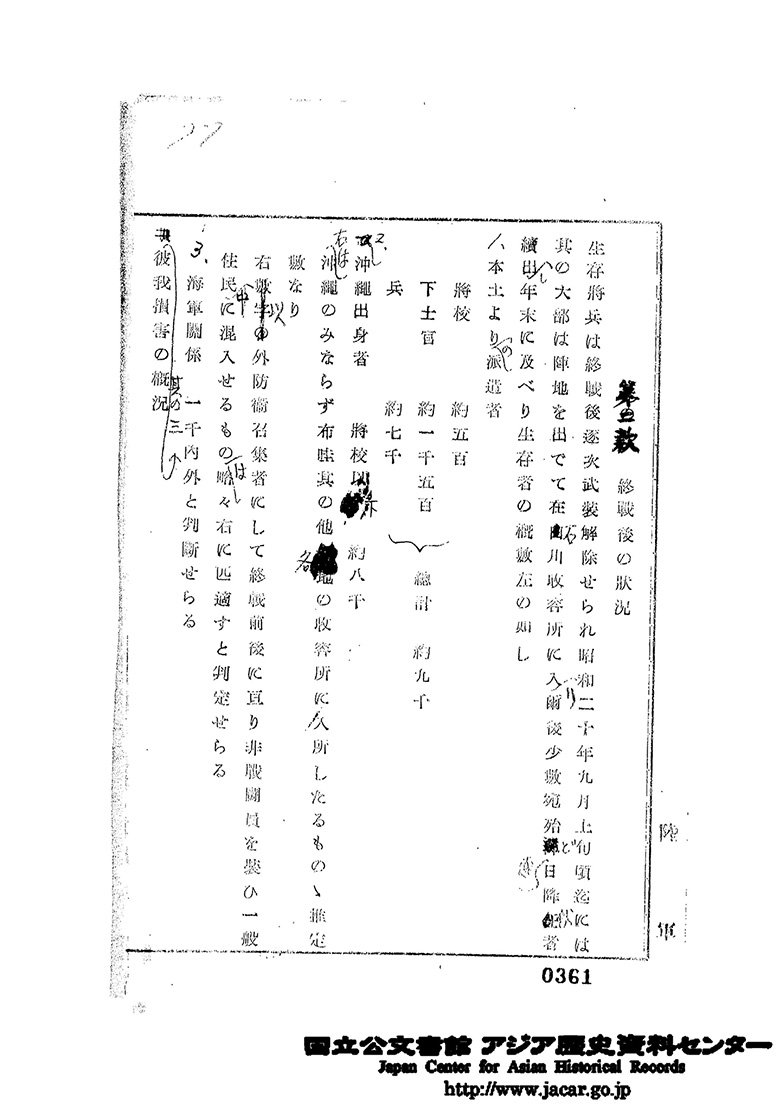 77
第三款 終戰後の狀況
生存將兵は終戰後逐次武裝解除せられ昭和二十年九月上旬頃迄には
其の大部は陣地を出でて在石川收容所に入り爾後少數宛殆ど連日降伏者
續出し年末に及べり生存者の概數左の如し
1、本土よりの派遣者
將校 約五百
下士官 約一千五百 總計 約九千
兵 約七千
2、沖繩出身者 將校以下 約八千
右は沖繩のみならず布哇其の他各地の收容所に入所したるものゝ推定
數なり
右以外防衛召集者にして終戰前後に亘り非戰鬪員を裝ひ一般
住民中に混入せるものは略々右に匹適すと判定せらる
3、海軍關係 一千內外と判斷せらる
其の三 彼我損害の概況
陸軍
0361
国立公文書館 アジア歴史資料センター
Japan Center for Asian Historical Records
http://www.jacar.go.jp